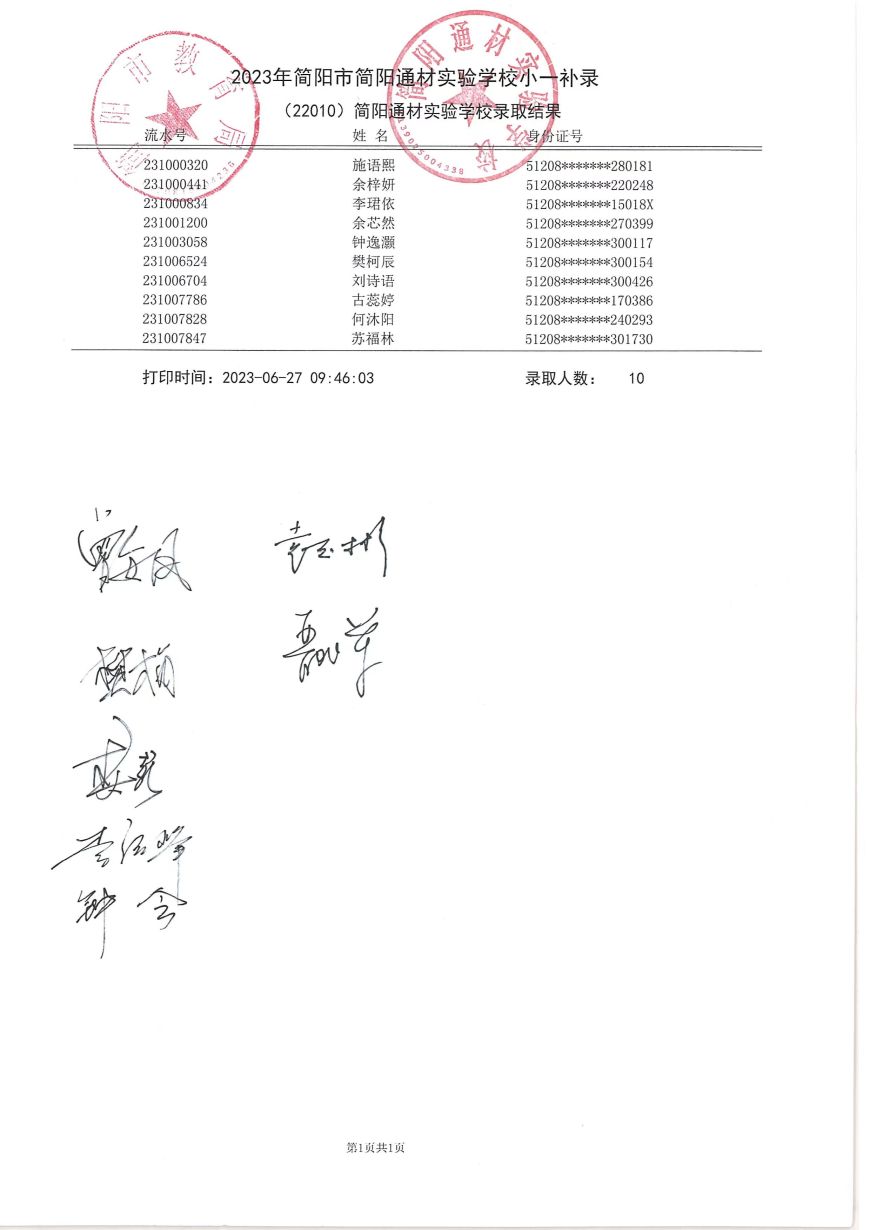 2023年简阳市简阳通材实验学校小一补录
（22010）简阳通材实验学校录取结果
流水号 姓 名 身份证号
231000320 施语熙 51208*******280181
231000441 余梓妍 51208*******220248
231000834 李珺依 51208*******15018X
231001200 余芯然 51208*******270399
231003058 钟逸灏 51208*******300117
231006524 樊柯辰 51208*******300154
231006704 刘诗语 51208*******300426
231007786 古蕊婷 51208*******170386
231007828 何沐阳 51208*******240293
231007847 苏福林 51208*******301730
打印时间：2023-06-27 09:46:03 录取人数： 10
简阳市教育局
简阳通材实验学校
第1页共1页